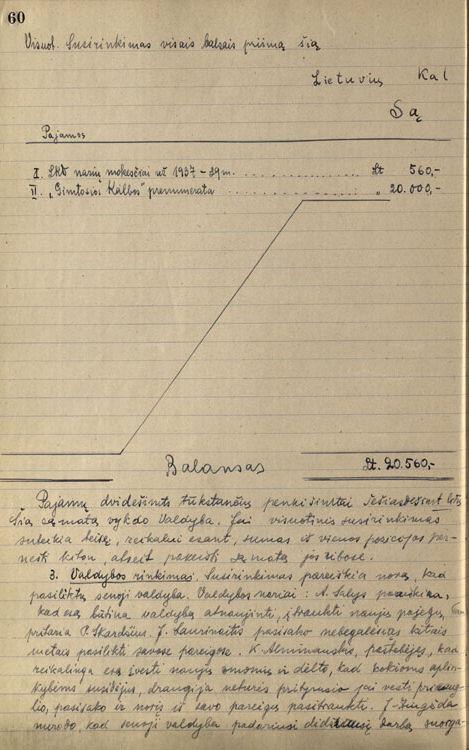 60
Visuot. Susirinkimas visais balsais priima šią
Lietuvių Kal
Są
Pajamos
I. LKD narių mokesčiai už 1937–39 m. .................. Lt 560,-
II. „Gimtosios Kalbos" prenumerata .................. „ 20.000,-
Balansas Lt. 20.560,-
Pajamų dvidešimts tūkstančių penki šimtai šešiasdešimt litų
Šią sąmatą vykdo Valdyba. Jai visuotinis susirinkimas
suteikia teisę, reikalui esant, sumas iš vienos pozicijos per-
nešti kiton, atseit pakeisti sąmatą jos ribose.
3. Valdybos rinkimai. Susirinkimas pareiškia norą, kad
pasiliktų senoji valdyba. Valdybos nariai: A. Salys pareiškia,
kad esą būtina valdybą atnaujinti, įtraukti naujų pajėgų,
pritaria P. Skardžius. J. Laurinaitis pasisako nebegalėsiąs kitais
metais pasilikti savose pareigose. K. Alminauskis, pastebėjęs, kad
reikalinga esą įvesti naujų žmonių ir dėlto, kad kokioms aplin-
kybėms susidėjus, draugija neturės prityrusio jai vesti
lio, pasisako ir noris iš savo pareigų pasitraukti. J. Žiugžda
nurodo, kad senoji valdyba padariusi didžiausią darbą